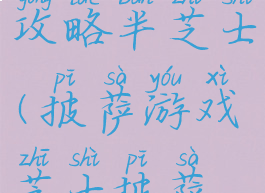 gōng lüè bàn zhī shì
攻略半芝士
pī sà yóu xì
(披萨游戏
zhī shì pī sà
芝士披萨